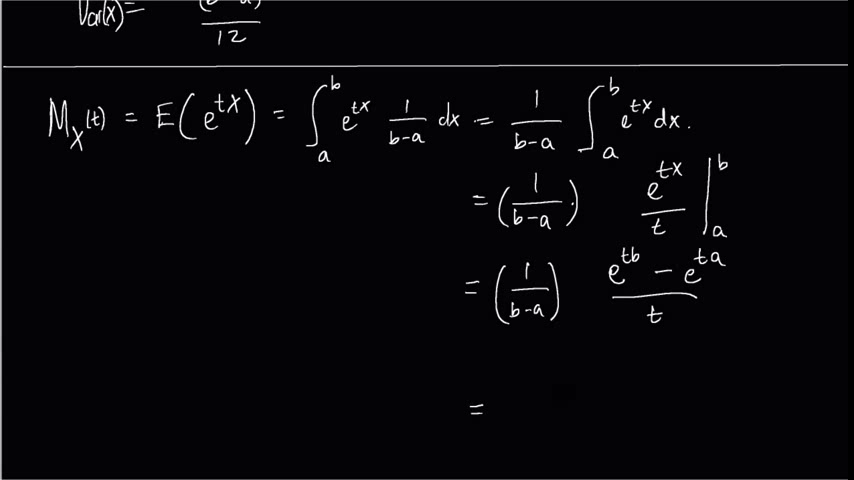 Var(X) =
12
M_X(t) = E(e^{tX}) = ∫_a^b e^{tx} \frac{1}{b-a} dx = \frac{1}{b-a} ∫_a^b e^{tx} dx.
= (\frac{1}{b-a}) \frac{e^{tx}}{t} |_a^b
= (\frac{1}{b-a}) \frac{e^{tb} - e^{ta}}{t}
=